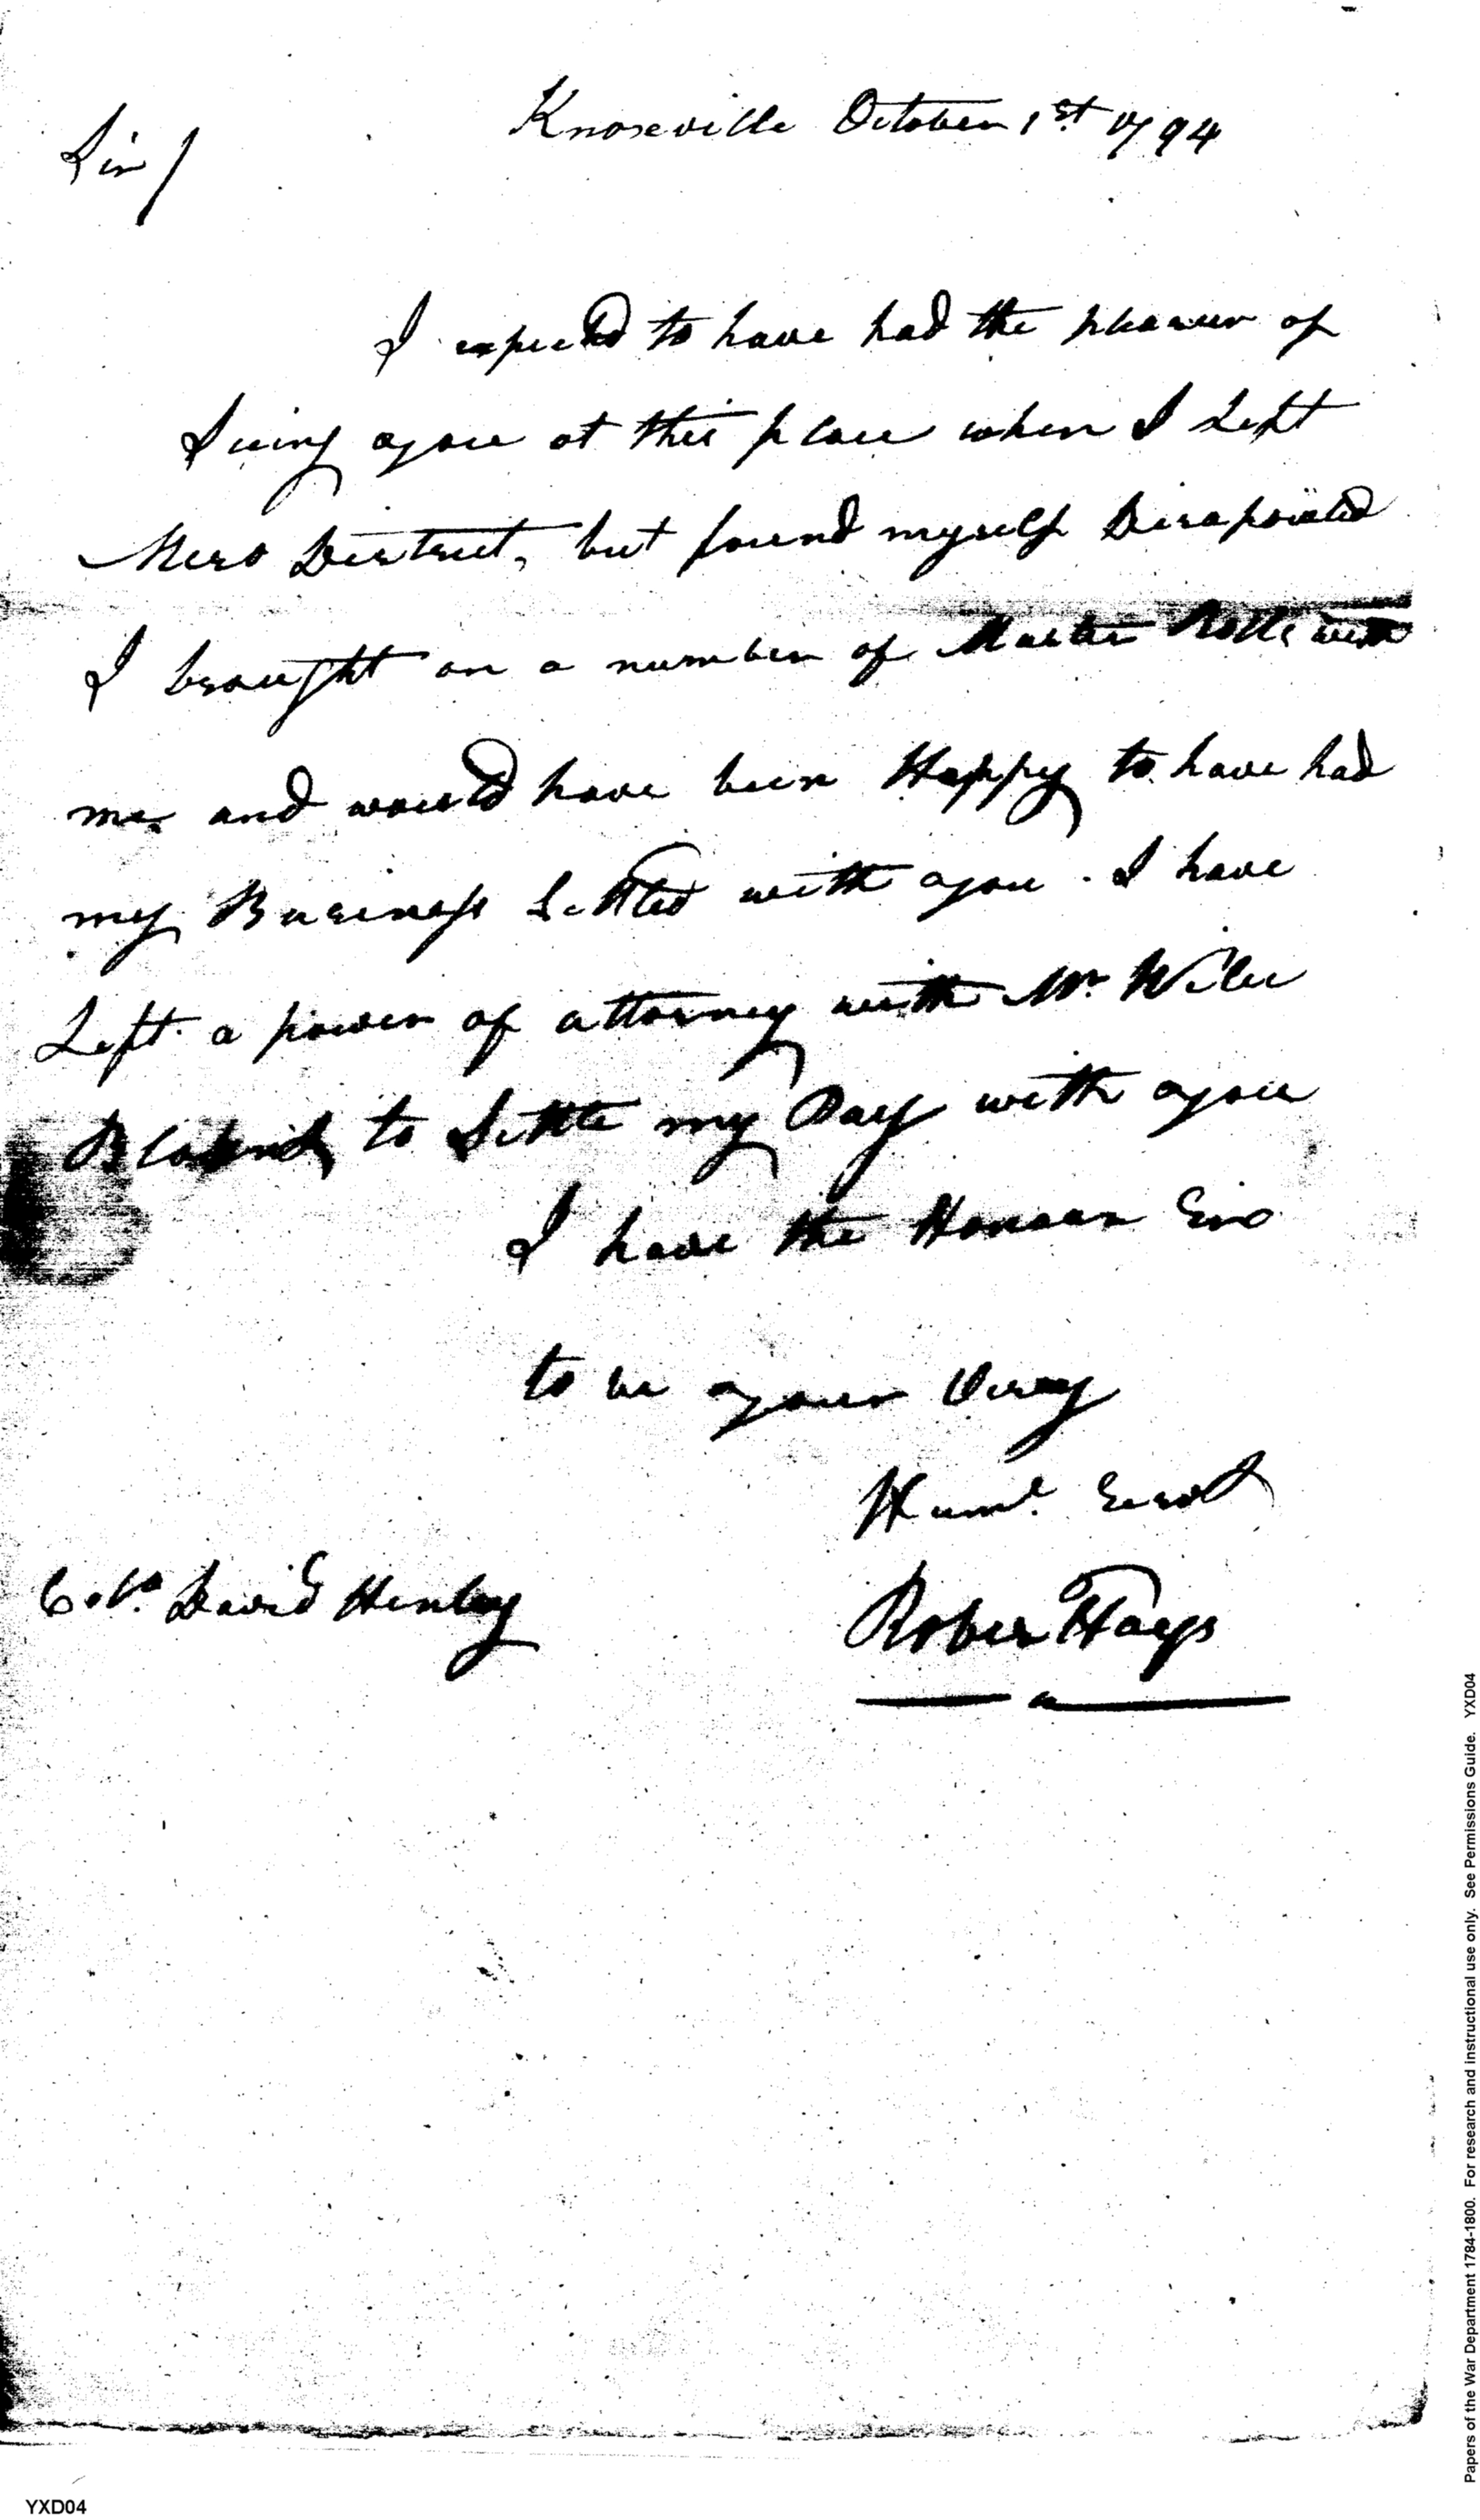 Knoxville October 1st 1794
Sir/
I expected to have had the pleasuer of
Seeing you at this place when I Left
Mero District, but found myself Disapointed
I brought on a number of Muster Rolls with
me and would have been Happy to have had
my Business Settled with you. I have
Left a power of attorney with Mr.
to Settle my Pay with you
I have the Honour Sir
to be your Very
Huml. Servt
Robert Hays
Colo. David Henley
Papers of the War Department 1784-1800. For research and instructional use only. See Permissions Guide. YXD04
YXD04